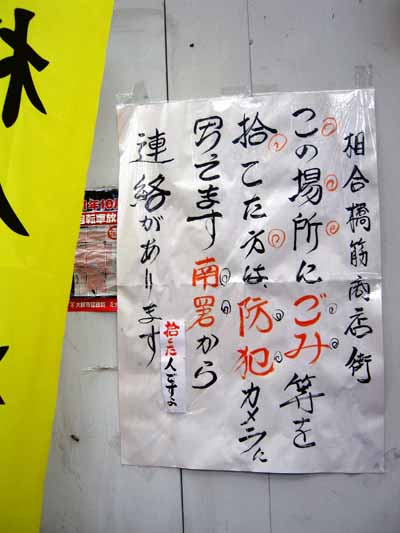 相合橋筋商店街
この場所にごみ等を
拾てた方は、防犯カメラに
ます南署から
連絡があります
拾た人ですよ
年10月
自転車放